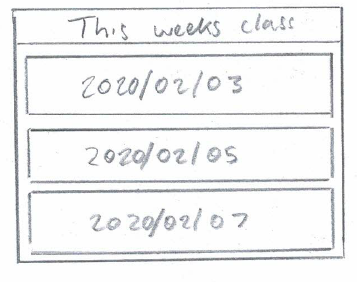 This weeks class
2020/02/03
2020/02/05
2020/02/07